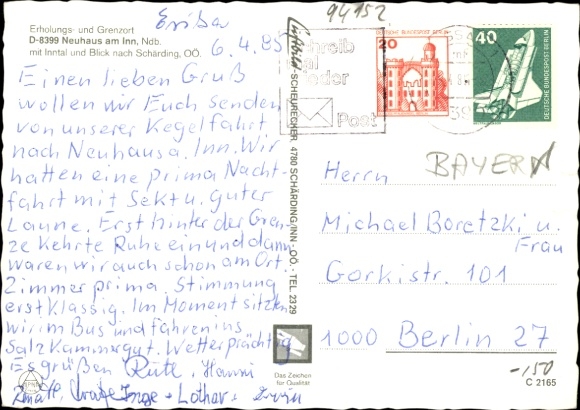 Erika
94152
Erholungs- und Grenzort
D-8399 Neuhaus am Inn, Ndb.
mit Inntal und Blick nach Schärding, OÖ.
6.4.85
Einen lieben Gruß
wollen wir Euch senden
von unserer Kegelfahrt
nach Neuhaus a. Inn. Wir
hatten eine prima Nacht-
fahrt mit Sekt u. guter
Laune. Erst hinter der Gren-
ze kehrte Ruhe ein und dann
waren wir auch schon am Ort.
Zimmer prima. Stimmung
erstklassig. Im Moment sitzen
wir im Bus und fahren ins
Salzkammergut. Wetter prächtig
Es grüßen Ruth, Hanni
Inge + Lothar +
SCHEURECKER 4780 SCHÄRDING/INN, OÖ. - TEL. 2329
Schreib
mal
wieder
Post
20
DEUTSCHE BUNDESPOST BERLIN
40
DEUTSCHE BUNDESPOST BERLIN
BAYERN
Herrn
Michael Boretzki u.
Frau
Gorkistr. 101
1000 Berlin 27
Das Zeichen
für Qualität
-,150
C 2165